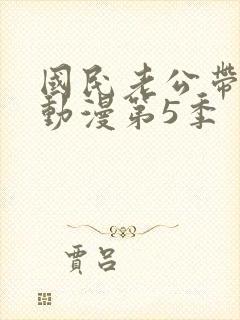 國民老公帶
動漫第5季
賈呂